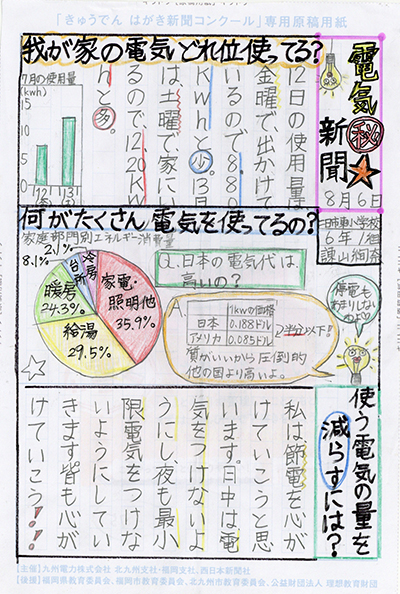 「きゅうでん はがき新聞コンクール」専用原稿用紙
電気㊙新聞
8月6日
日市東小学校
6年1組
我が家の電気いどれ位使ってる?
12日の使用量は
金曜で、出かけて
いるので8.80
Kwhと少。13日
は、土曜で、家にい
るので、12.20Kw
hと多。
7月の使用量
(kwh)
15
10
5
0
何がたくさん電気を使ってるの?
家庭部門別エネルギー消費量
家電・照明他
35.9%
給湯
29.5%
暖房
24.3%
台所
8.1%
冷房
2.1%
Q.日本の電気代は、
高いの?
A.
1kwの価格
日本 0.188ドル
アメリカ 0.085ドル
2分の1以下!!
質がいいから圧倒的
他の国より高いよ。
停電も
あまりしない
のよ
使う電気の量を
減らすには?
私は節電を心が
けていこうと思
います。日中は電
気をつけないよ
うにし、夜も最小
限電気をつけな
いようにしてい
きます皆も心が
けていこう!!
【主催】九州電力株式会社 北九州支社・福岡支社、西日本新聞社
【後援】福岡県教育委員会、福岡市教育委員会、北九州市教育委員会、公益財団法人 理想教育財団